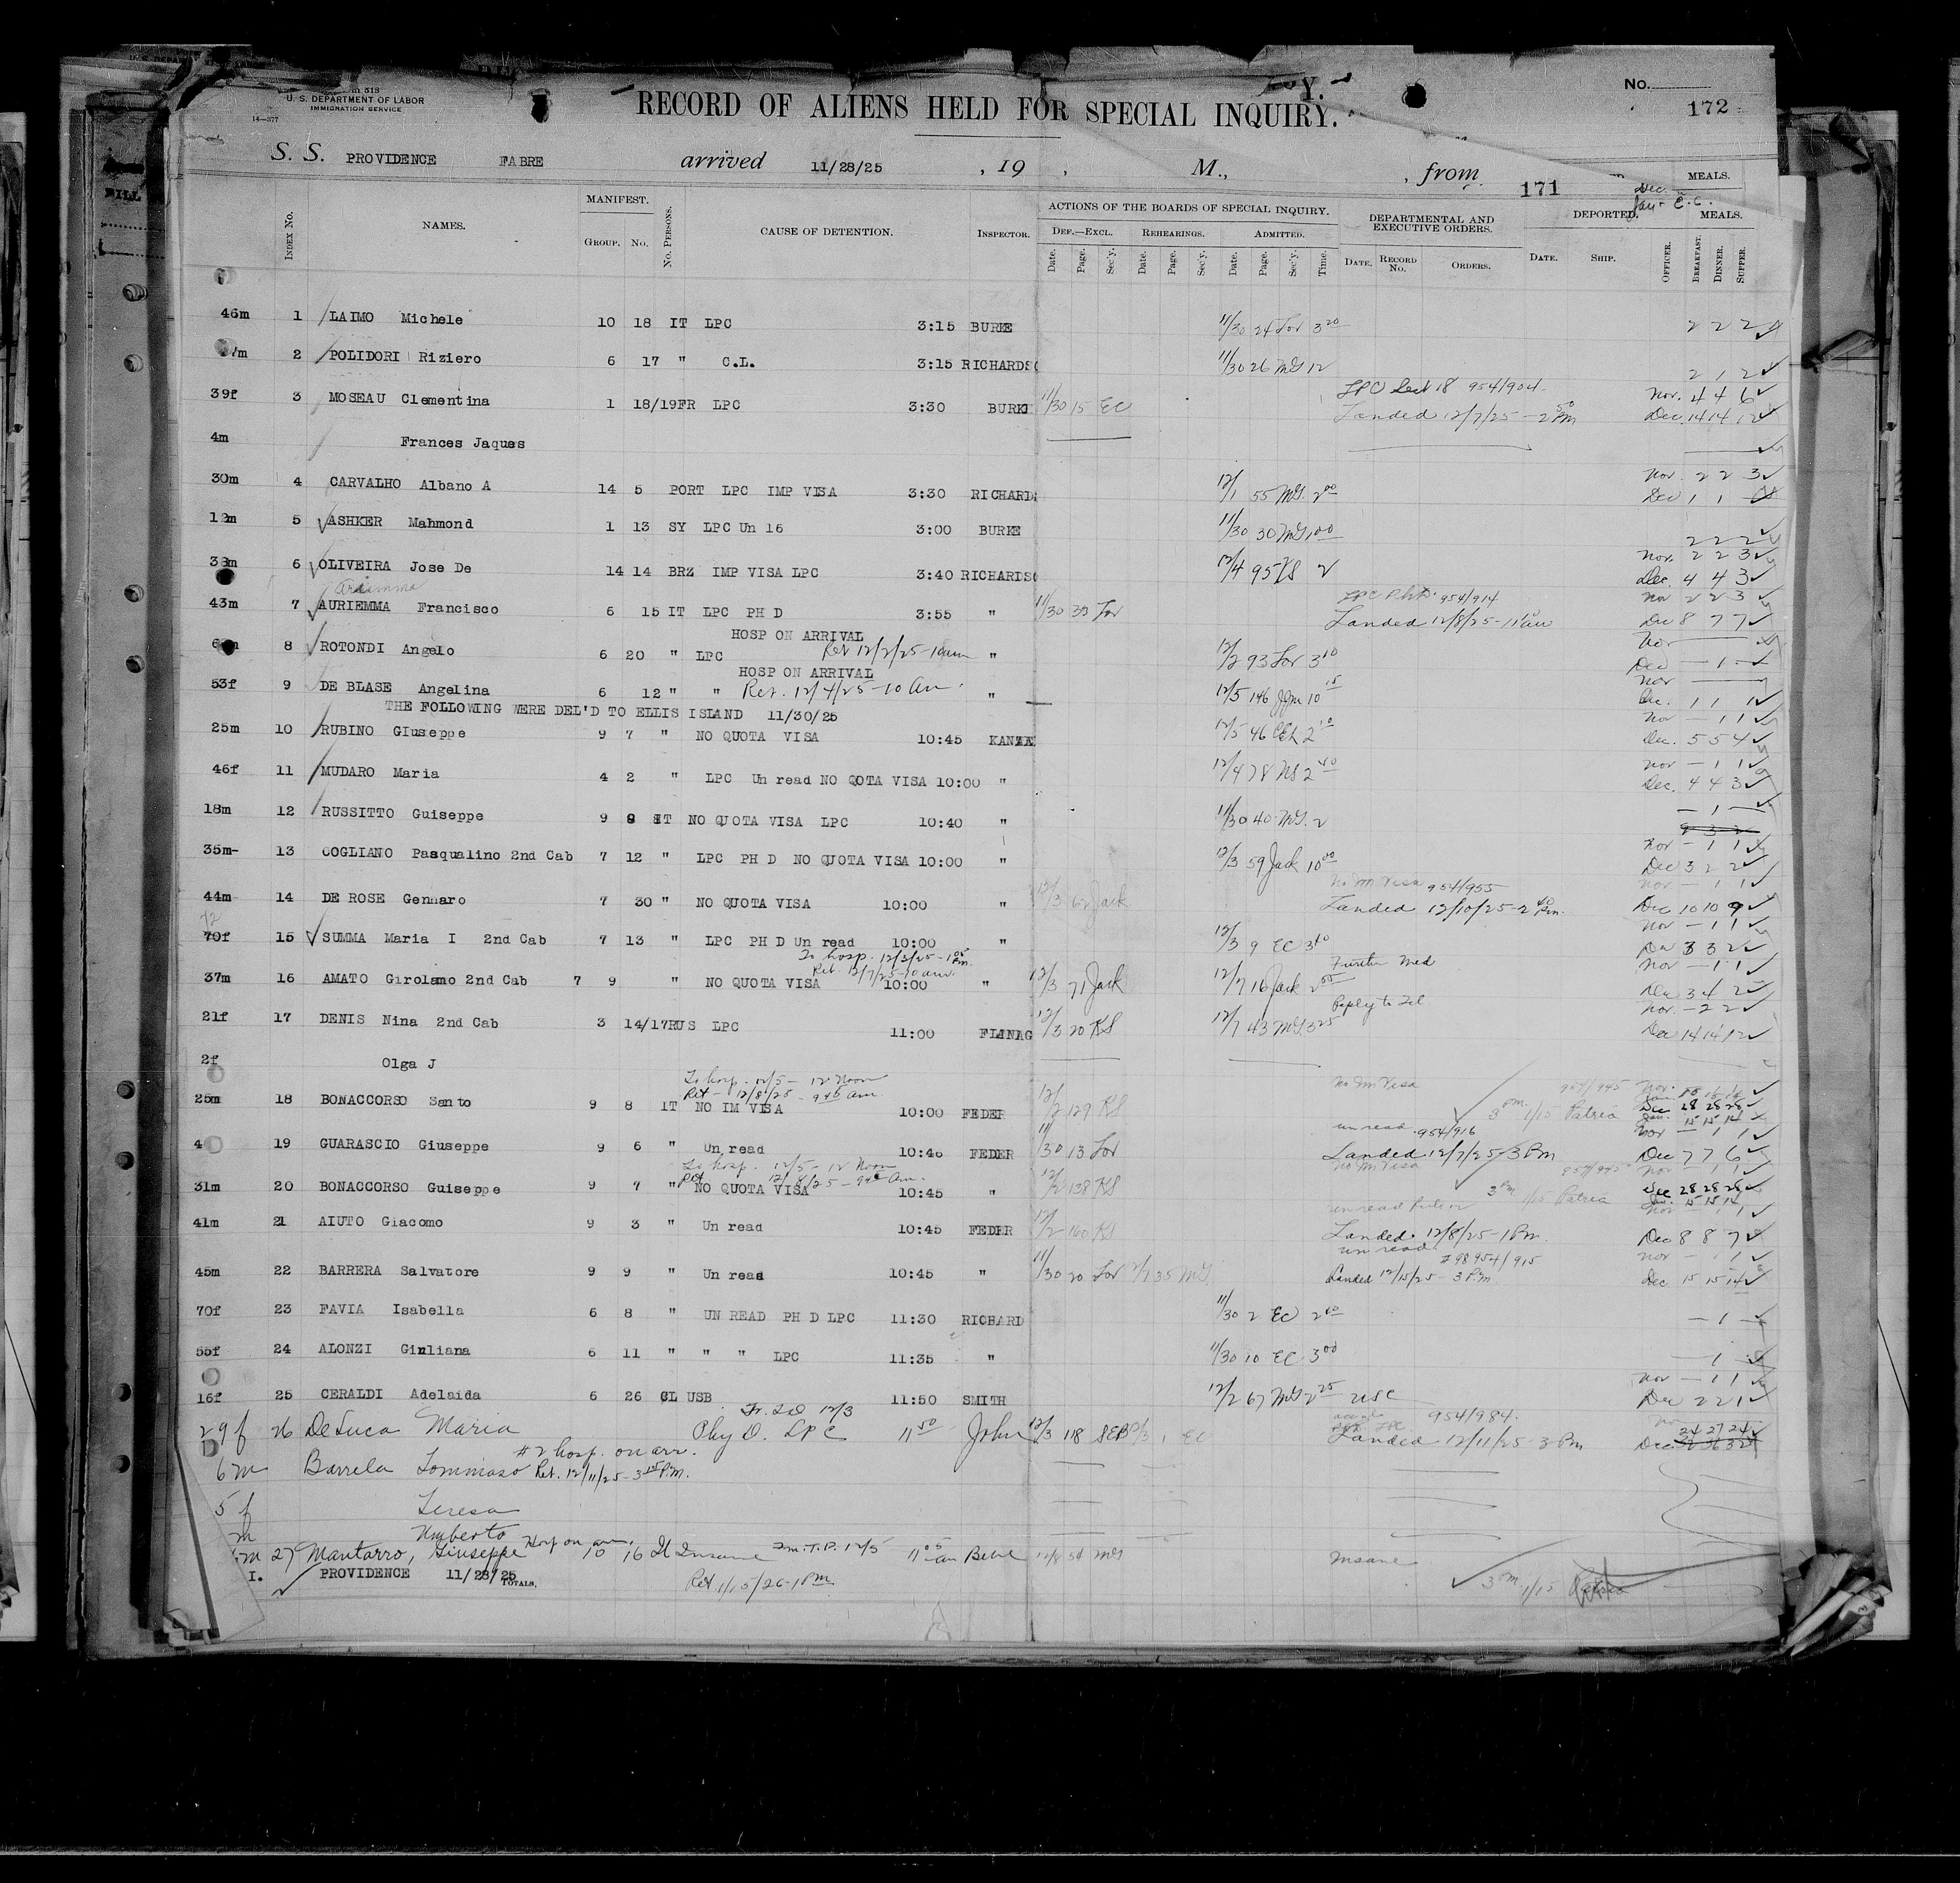 U. S. DEPARTMENT OF LABOR
IMMIGRATION SERVICE
14—377
RECORD OF ALIENS HELD FOR SPECIAL INQUIRY.
No.
172
S. S. PROVIDENCE FABRE arrived 11/28/25, 19 , M., , from
171
MEALS.
Dec.
Jan - E.C.
INDEX No. NAMES. MANIFEST. GROUP. No. No. PERSONS. CAUSE OF DETENTION. INSPECTOR. ACTIONS OF THE BOARDS OF SPECIAL INQUIRY. DEPARTMENTAL AND EXECUTIVE ORDERS. DEPORTED. MEALS.
DEF.—EXCL. REHEARINGS. ADMITTED.
Date. Page. Sec'y. Date. Page. Sec'y. Date. Page. Sec'y. Time. DATE. RECORD No. ORDERS. DATE. SHIP. OFFICER. BREAKFAST. DINNER. SUPPER.
46m 1 LAIMO Michele 10 18 IT LPC 3:15 BURKE 11/30 24 Lor 3 20 2 2 2
7m 2 POLIDORI Riziero 6 17 " C.L. 3:15 RICHARDS 11/30 26 MG 12 2 1 2
LPC 18 954/904
39f 3 MOSEAU Clementina 1 18/19 FR LPC 3:30 BURKE 11/30 15 EC Landed 12/7/25 - 2 50 PM Nov. 4 4 6
Dec. 14 14 12
4m Frances Jaques
Nov. 2 2 3
30m 4 CARVALHO Albano A 14 5 PORT LPC IMP VISA 3:30 RICHARD 12/1 55 MG. 2 00 Dec 1 1
12m 5 ASHKER Mahmond 1 13 SY LPC Un 16 3:00 BURKE 11/30 30 MG 1 00 2 2 2
Nov. 2 2 3
38m 6 OLIVEIRA Jose De 14 14 BRZ IMP VISA LPC 3:40 RICHARDS 12/4 95 KS 2 Dec. 4 4 3
LPC Ph D. 954/914 Nov 2 2 3
43m 7 AURIEMMA Francisco 6 15 IT LPC PH D 3:55 " 11/30 35 Lor Landed 12/8/25 - 11 am Dec 8 7 7
HOSP ON ARRIVAL
8 ROTONDI Angelo 6 20 " LPC Ret 12/2/25 - 10 am " 12/2 93 Lor 3 10 Nov
Dec — 1 —
HOSP ON ARRIVAL
53f 9 DE BLASE Angelina 6 12 " " Ret. 12/4/25 - 10 Am. " 12/5 146 JJm 10 15 Nov
Dec. 1 1 1
THE FOLLOWING WERE DEL'D TO ELLIS ISLAND 11/30/25
25m 10 RUBINO GIuseppe 9 7 " NO QUOTA VISA 10:45 12/5 46 2 10 Nov — 1 1
Dec. 5 5 4
46f 11 MUDARO Maria 4 2 " LPC Un read NO QOTA VISA 10:00 " 12/4 78 NS 2 40 Nov — 1 1
Dec. 4 4 3
18m 12 RUSSITTO Guiseppe 9 8 IT NO QUOTA VISA LPC 10:40 " 11/30 40 MG. 2 — 1 —
35m- 13 COGLIANO Pasqualino 2nd Cab 7 12 " LPC PH D NO QUOTA VISA 10:00 " 12/3 59 Jack 10 00 Nov — 1 1
Dec 3 2 2
No Im Visa 954/955 Nov — 1 1
44m 14 DE ROSE Gennaro 7 30 " NO QUOTA VISA 10:00 " 12/3 62 Jack Landed 12/10/25 - 2 40 Pm. Dec 10 10 9
72
70f 15 SUMMA Maria I 2nd Cab 7 13 " LPC PH D Un read 10:00 " 12/3 9 EC 3 10 Nov — 1 1
Dec 3 3 2
To hosp. 12/3/25 - 1 05 Pm.
Ret. 12/7/25 - 10 am. Further Med
37m 16 AMATO Girolamo 2nd Cab 7 9 " NO QUOTA VISA 10:00 " 12/3 71 Jack 12/7 16 Jack 2 00 Nov — 1 1
Dec 3 4 2
Reply to Tel
21f 17 DENIS Nina 2nd Cab 3 14/17 RUS LPC 11:00 FLANAG 12/3 20 KS 12/7 43 MG 3 25 Nov. — 2 2
Dec 14 14 12
2f Olga J
To hosp. 12/5 - 12 Noon
Ret - 12/8/25 - 9 45 am. No Im Visa 957/945
25m 18 BONACCORSO Santo 9 8 IT NO IM VISA 10:00 FEDER 12/2 129 KS 3 pm 1/15 Patria Dec 28 28 28
Jan. 15 15 14
un read 954/916 Nov — 1 1
4 19 GUARASCIO Giuseppe 9 6 " Un read 10:45 FEDER 11/30 13 Lor Landed 12/7/25 - 3 Pm Dec 7 7 6
To hosp. 12/5 - 12 Noon
Ret 12/8/25 - 9 45 Am. No Im Visa 957/945 Nov — 1 1
31m 20 BONACCORSO Guiseppe 9 7 " NO QUOTA VISA 10:45 " 12/2 138 KS 3 pm 1/15 Patria Dec 28 28 28
Jan. 15 15 14
un read
41m 21 AIUTO Giacomo 9 3 " Un read 10:45 FEDER 12/2 160 KS Landed. 12/8/25 - 1 Pm. Dec 8 8 7
un read #98954/915
45m 22 BARRERA Salvatore 9 9 " Un read 10:45 " 11/30 20 Lor 35 MG. Landed 12/15/25 - 3 P.m. Dec 15 15 14
70f 23 FAVIA Isabella 6 8 " UN READ PH D LPC 11:30 RICHARD 11/30 2 EC 2 40 — 1 —
55f 24 ALONZI Giuliana 6 11 " " " LPC 11:35 " 11/30 10 EC 3 00 — 1 —
16f 25 CERALDI Adelaida 6 26 CL USB 11:50 SMITH 12/2 67 MG 2 25 USC Nov — 1 1
Dec 2 2 1
Tr. SD 12/3 954/984.
29f 26 DeLuca Maria Phy D. LPC 11 50 John 12/3 118 SEB 1 EC Landed 12/11/25 - 3 Pm 24 27 24
Dec
#2 hosp. on arr.
6m Barrela Tommaso Ret. 12/11/25 - 3 15 P.M.
5 f Teresa
m Umberto
27 Mantarro, Giuseppe Hosp on arr. 10 16 It Insane Im. T.P. 12/5 11 05 am 12/8 54 MG Insane
I. PROVIDENCE 11/28/25 TOTALS, Ret 1/15/26 - 1 Pm 3 pm 1/15 Patria